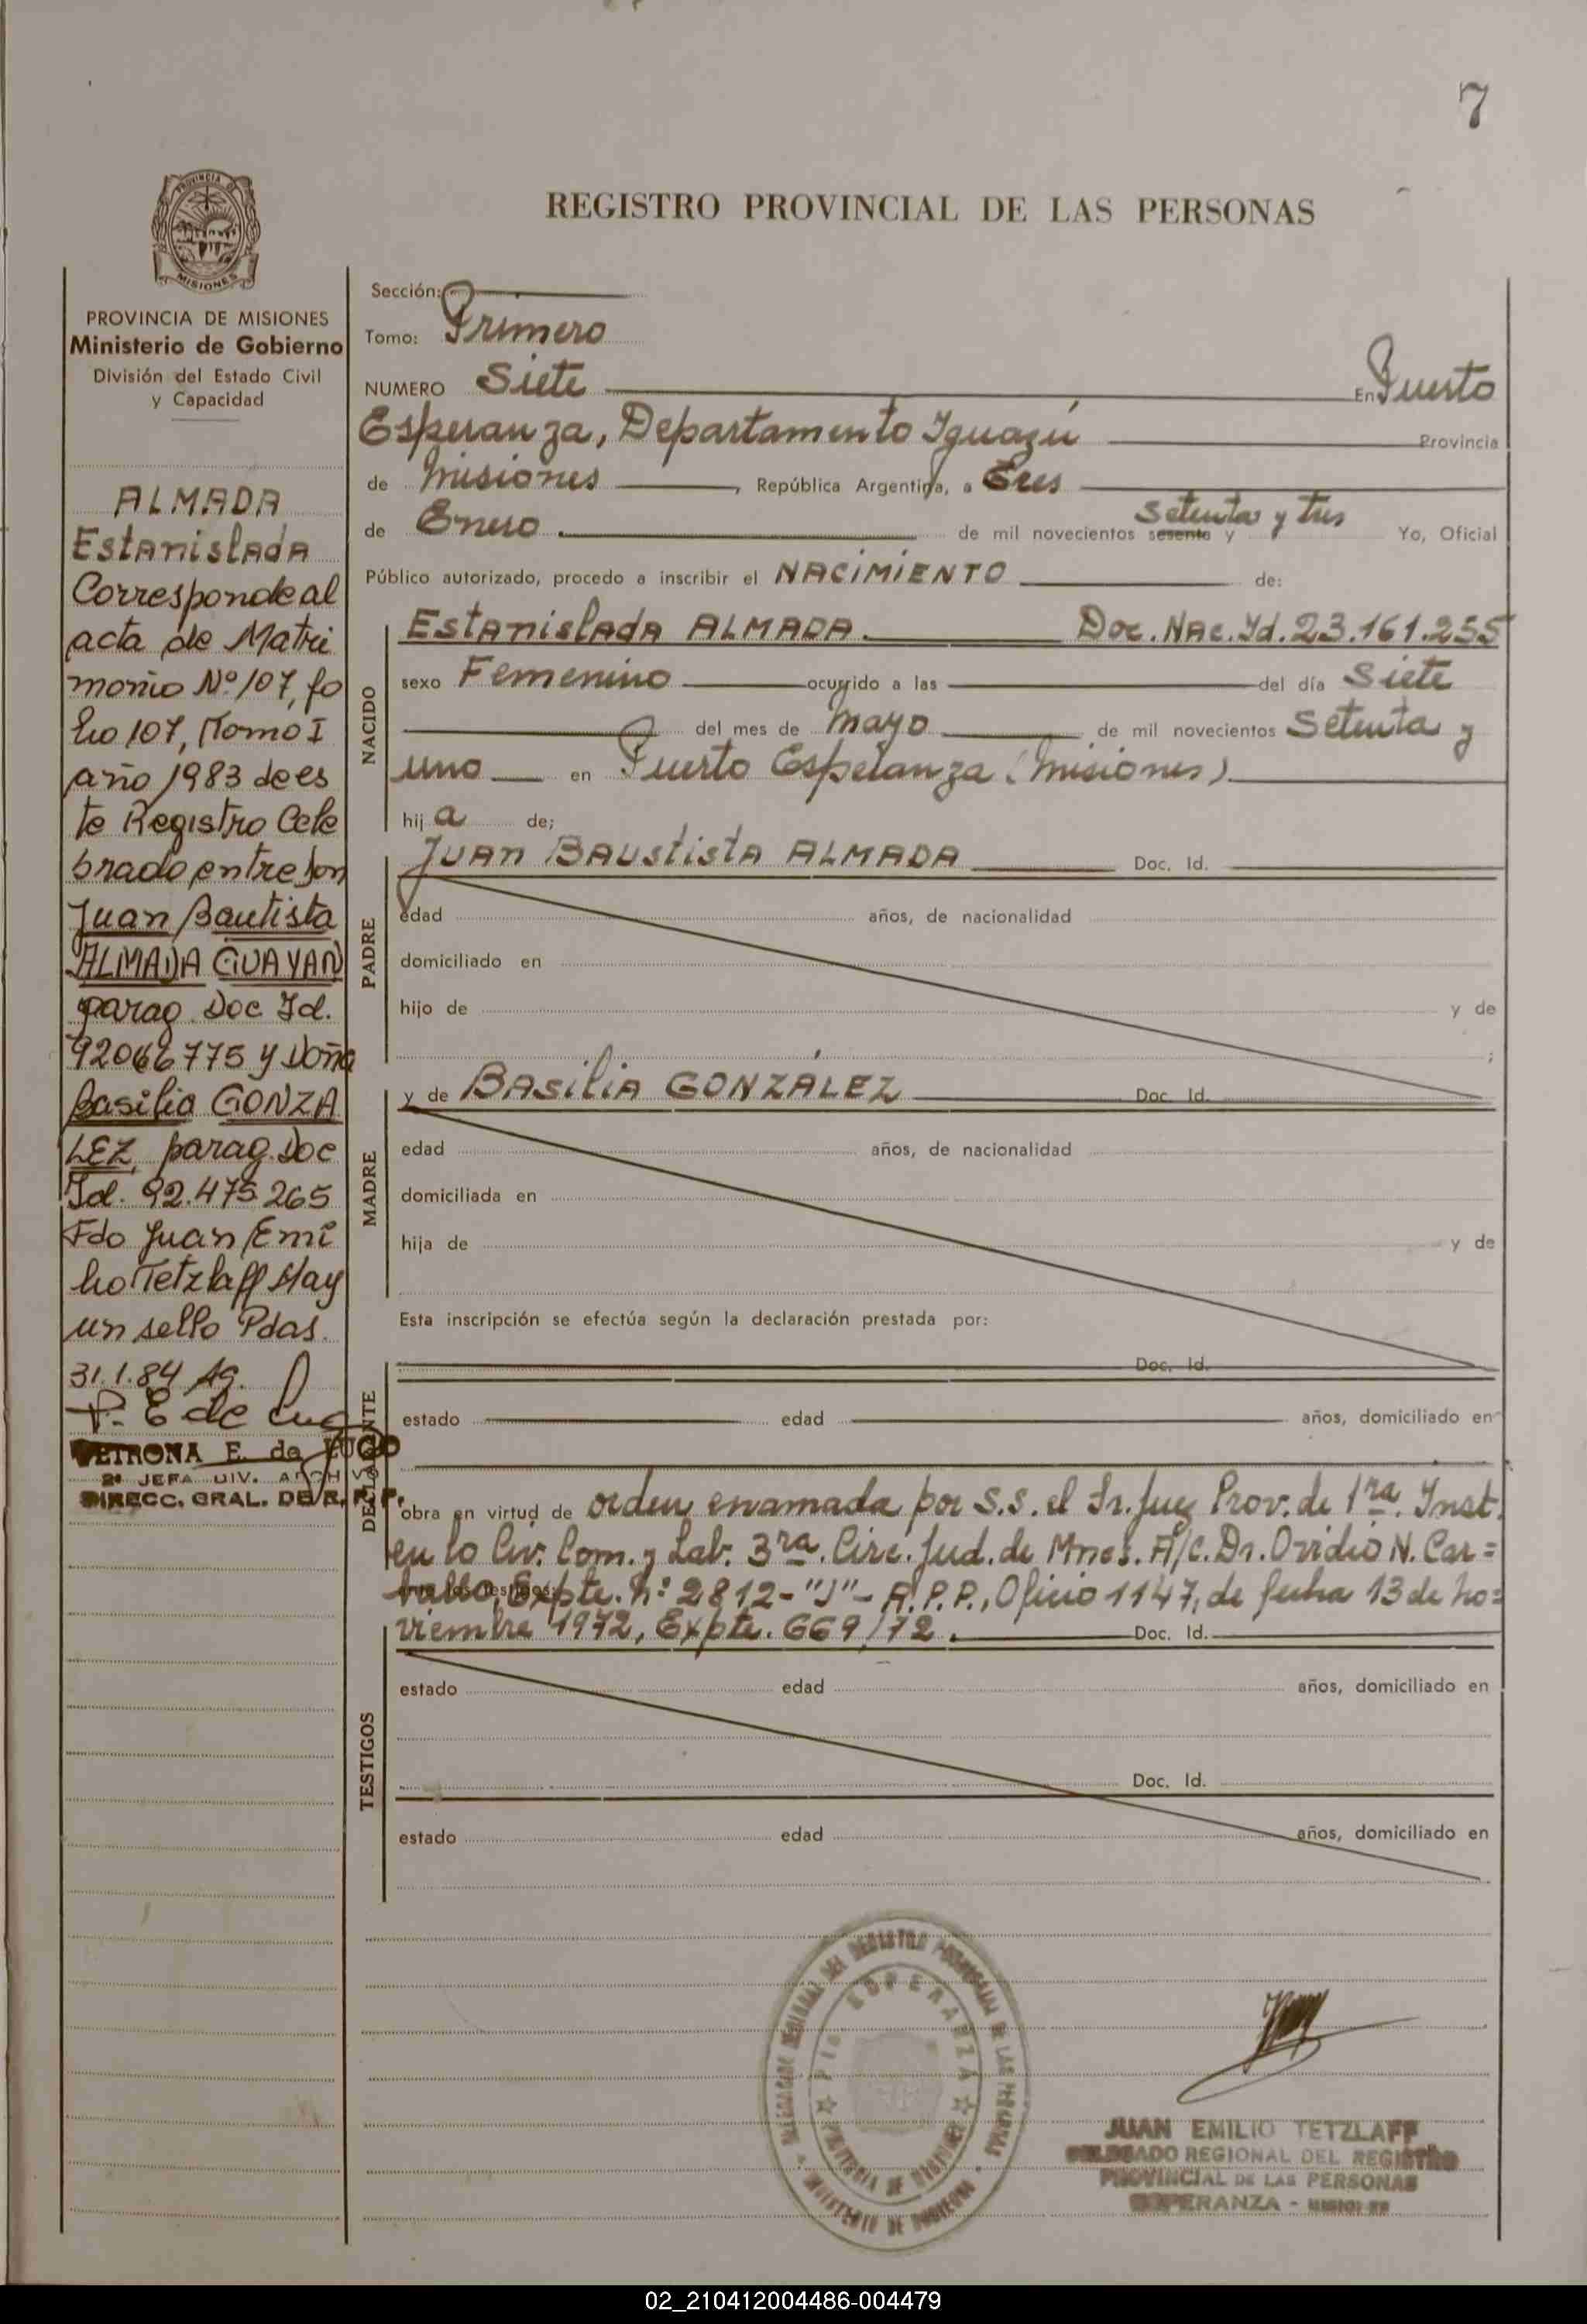 7
PROVINCIA DE
MISIONES
REGISTRO PROVINCIAL DE LAS PERSONAS
PROVINCIA DE MISIONES
Ministerio de Gobierno
División del Estado Civil
y Capacidad
ALMADA
Estanislada
Corresponde al
acta de Matri
monio Nº 107, fo
lio 107, Tomo I
año 1983 de es
te Registro Cele
brado entre Don
Juan Bautista
ALMADA GUAYAN
parag. Doc Id.
92066775 y Doña
Basilia GONZA
LEZ, parag. Doc
Id. 92.475.265
Fdo Juan Emi
lio Tetzlaff Hay
un sello Pdas.
31.1.84 AG.
P. E de Lugo
PETRONA E. de LUGO
2ª JEFA DIV. ARCH
DIRECC. GRAL. DE R. P. P.
Sección:
Tomo: Primero
NUMERO Siete En Puerto
Esperanza, Departamento Iguazú Provincia
de Misiones, República Argentina, a Tres
de Enero de mil novecientos sesenta y Setenta y tres Yo, Oficial
Público autorizado, procedo a inscribir el NACIMIENTO de:
NACIDO
Estanislada ALMADA Doc. Nac. Id. 23.161.255
sexo Femenino ocurrido a las del día Siete
del mes de mayo de mil novecientos Setenta y
uno en Puerto Esperanza (Misiones)
hija de;
PADRE
Juan Baustista ALMADA Doc. Id.
edad años, de nacionalidad
domiciliado en
hijo de y de
;
MADRE
y de Basilia GONZÁLEZ Doc. Id.
edad años, de nacionalidad
domiciliada en
hija de y de
Esta inscripción se efectúa según la declaración prestada por:
DECLARANTE
Doc. Id.
estado edad años, domiciliado en
obra en virtud de orden enamada por S.S. el Sr. Juez Prov. de 1ra. Inst.
en lo Civ. Com. y Lab. 3ra. Circ. Jud. de Mnes. A/c. Dr. Ovidio N. Car=
ballo, Expte. Nº 2812-"J"- R.P.P., Oficio 1147, de fecha 13 de no=
viembre 1972, Expte. 669/72. Doc. Id.
TESTIGOS
estado edad años, domiciliado en
Doc. Id.
estado edad años, domiciliado en
DELEGACION REGIONAL DEL REGISTRO PROVINCIAL DE LAS PERSONAS
MINISTERIO DE GOBIERNO
ESPERANZA
PROVINCIA DE MISIONES
JUAN EMILIO TETZLAFF
DELEGADO REGIONAL DEL REGISTRO
PROVINCIAL DE LAS PERSONAS
ESPERANZA - MISIONES
02_210412004486-004479